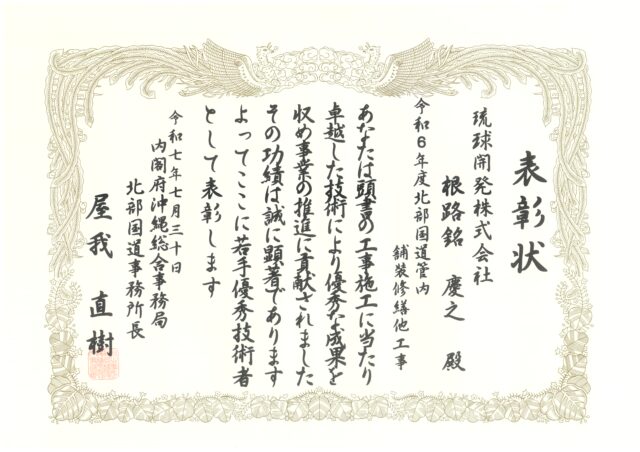 表彰状
琉球開発株式会社
根路銘 慶之 殿
令和6年度北部国道管内
舗装修繕他工事
あなたは頭書の工事施工に当たり
卓越した技術により優秀な成果を
収め事業の推進に貢献されました
その功績は誠に顕著であります
よってここに若手優秀技術者
として表彰します
令和七年七月三十日
内閣府沖縄総合事務局
北部国道事務所長
屋我 直樹